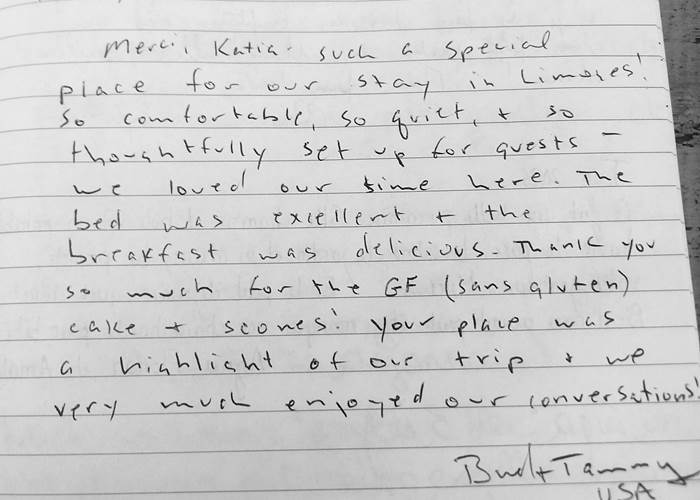 Merci, Katia. Such a special
place for our stay in Limoges!
So comfortable, so quiet, + so
thoughtfully set up for guests –
we loved our time here. The
bed was excellent + the
breakfast was delicious. Thank you
so much for the GF (sans gluten)
cake + scones! Your place was
a highlight of our trip + we
very much enjoyed our conversations!
Bud + Tammy
USA